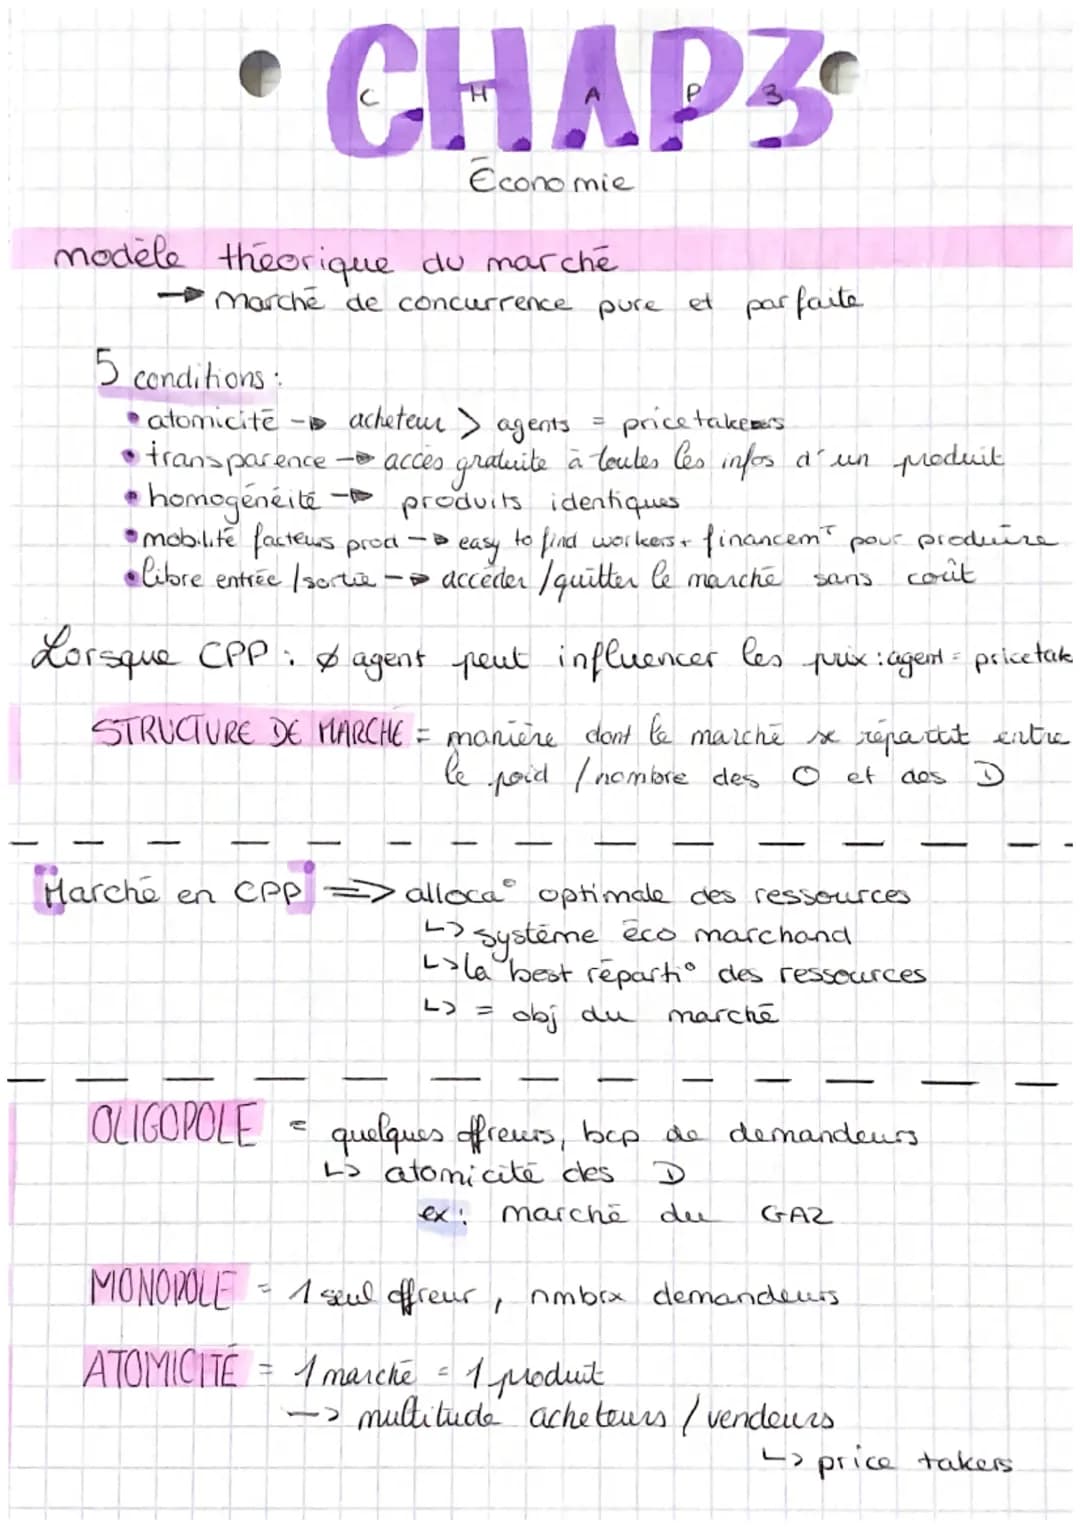 CHAP3
C H A P 3
Économie
modèle théorique du marché
→ marché de concurrence pure et parfaite
5 conditions :
• atomicité → acheteur > agents = pricetakers
• transparence → accès gratuite à toutes les infos d'un produit
• homogénéité → produits identiques
• mobilité facteurs prod → easy to find workers + financemt pour produire
• libre entrée / sortie → accéder / quitter le marché sans coût
Lorsque CPP : Ø agent peut influencer les prix : agent = pricetak
STRUCTURE DE MARCHE = manière dont le marché se répartit entre
le poid / nombre des O et des D
Marché en CPP => alloca° optimale des ressources
↳ système éco marchand
↳ la best réparti° des ressources
↳ = obj du marché
OLIGOPOLE = quelques offreurs, bcp de demandeurs
↳ atomicité des D
ex : marché du GAZ
MONOPOLE = 1 seul offreur, nmbrx demandeurs
ATOMICITÉ = 1 marché = 1 produit
→ multitude acheteurs / vendeurs
↳ price takers